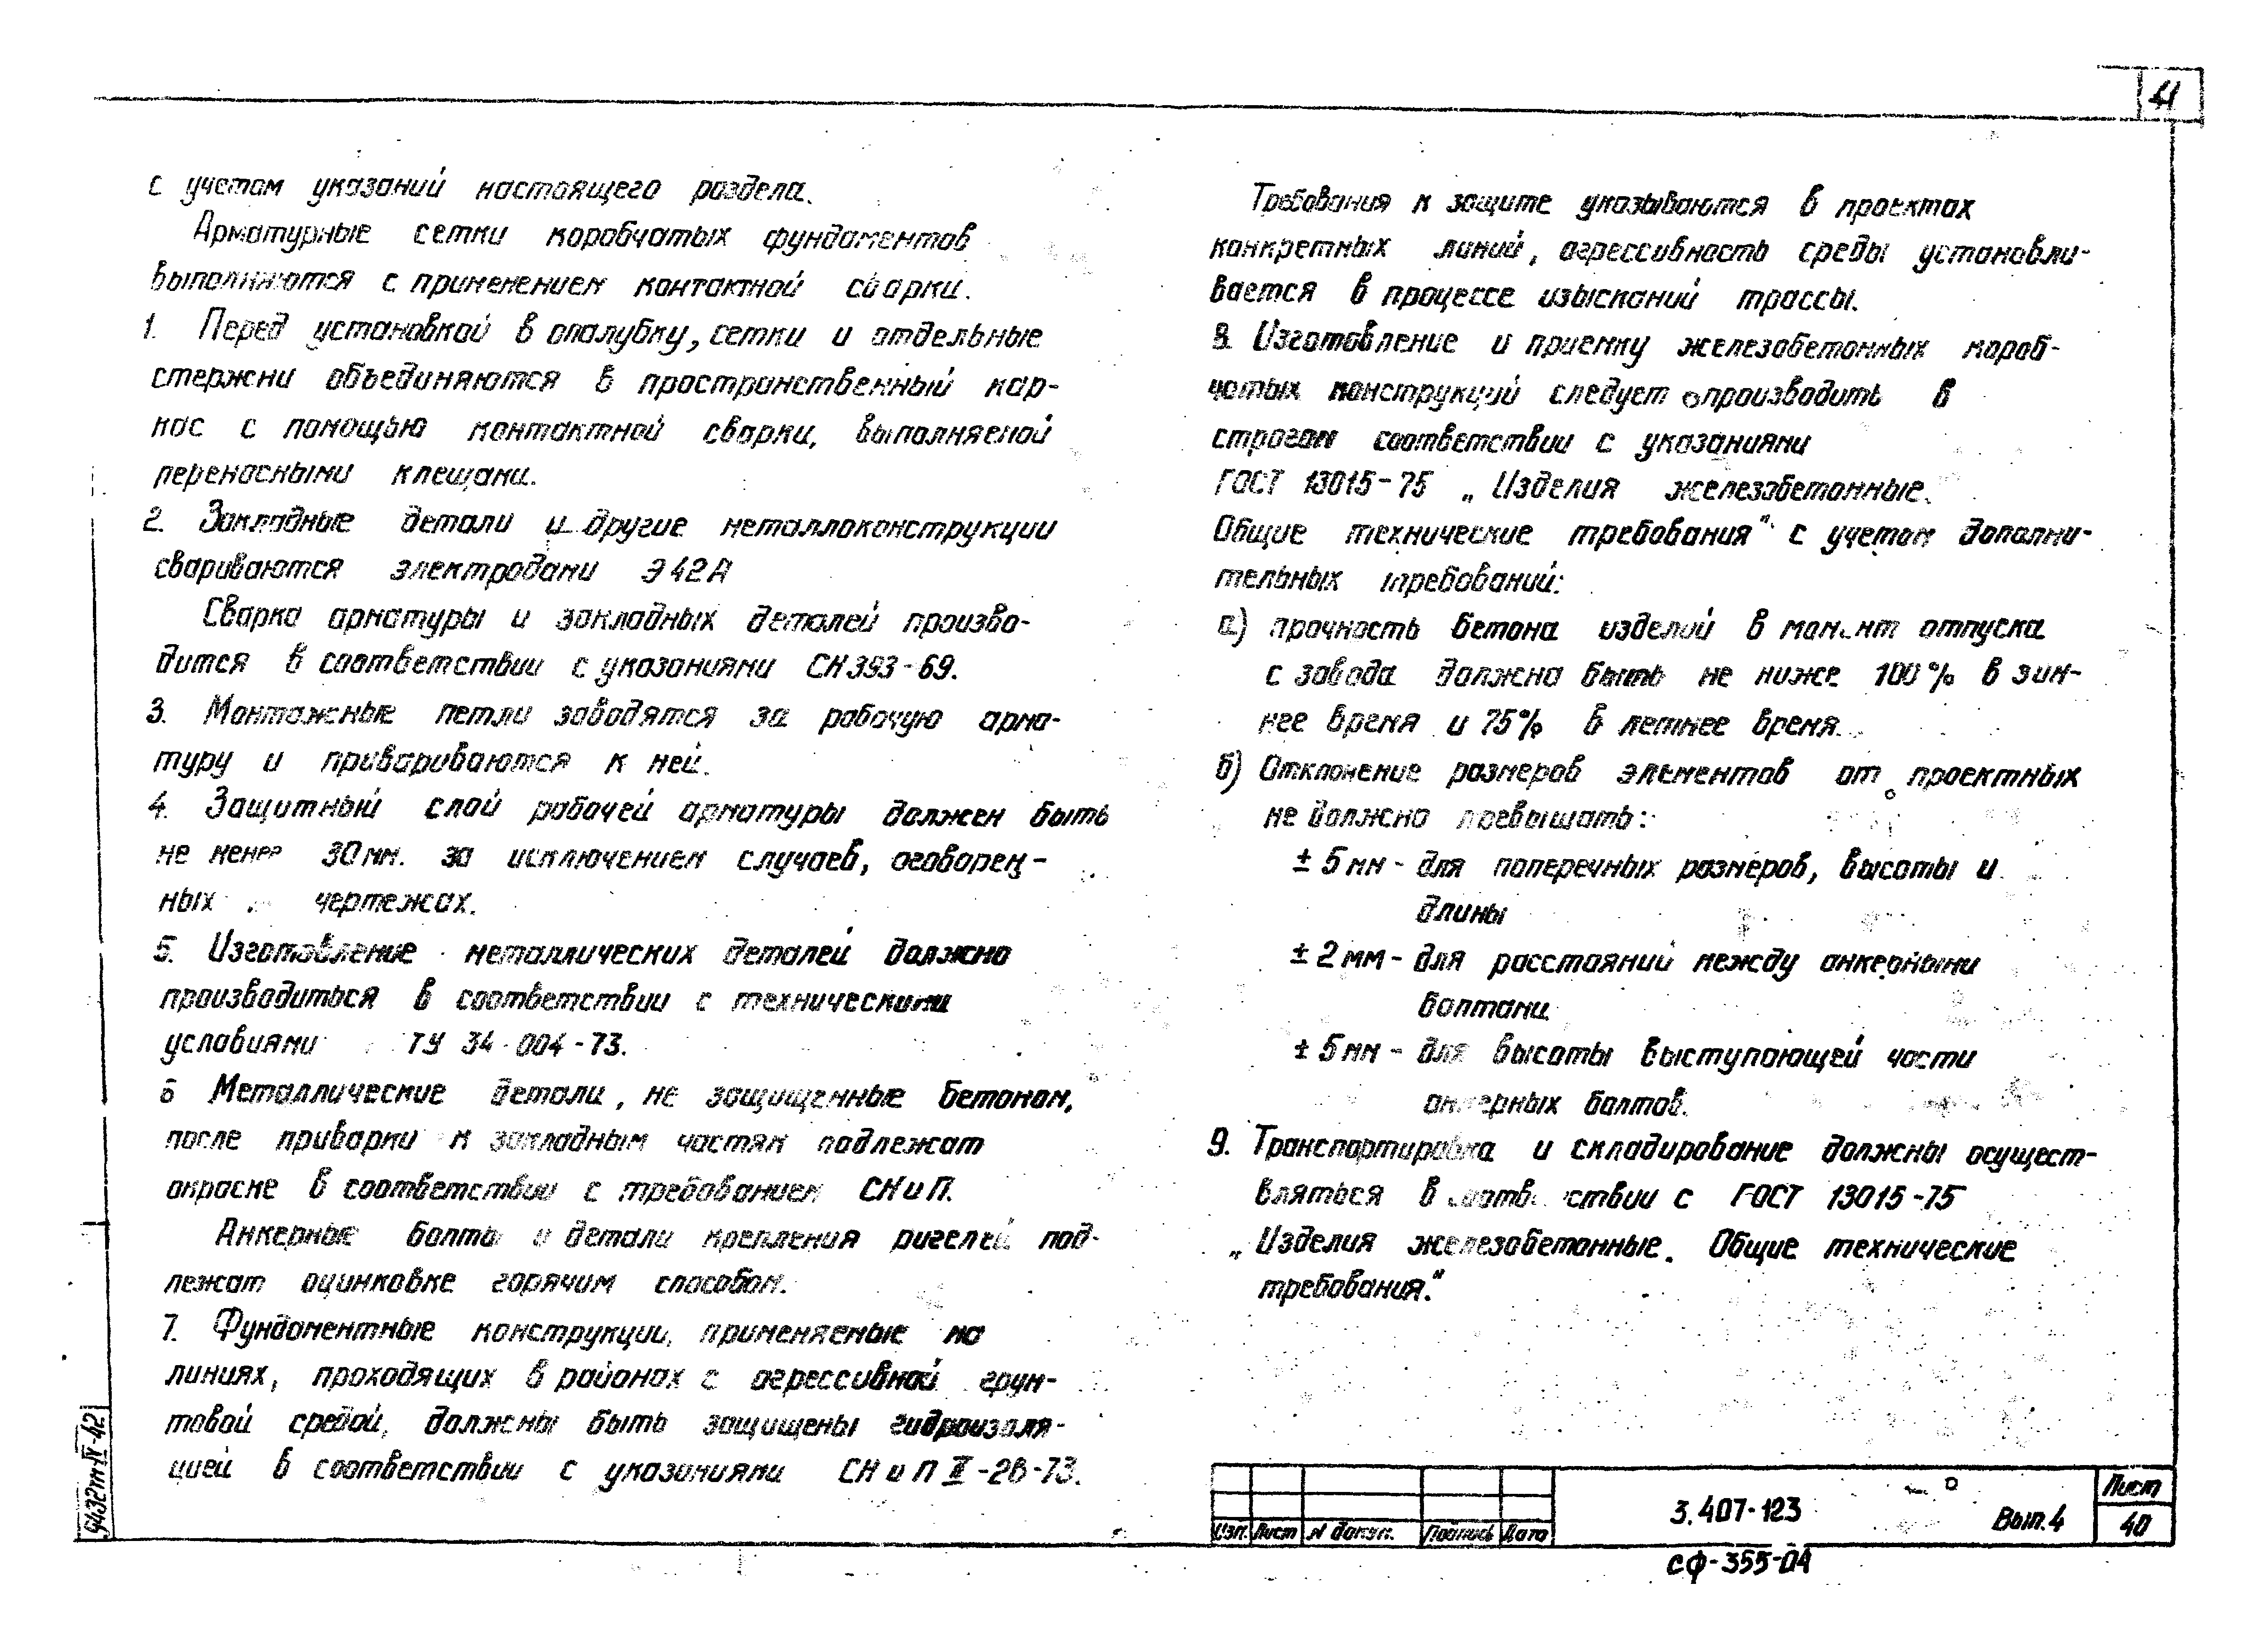 41
с учетом указаний настоящего раздела.
Арматурные сетки коробчатых фундаментов
выполняются с применением контактной сварки.
1. Перед установкой в опалубку, сетки и отдельные
стержни объединяются в пространственный кар-
кас с помощью контактной сварки, выполняемой
переносными клещами.
2. Закладные детали и другие металлоконструкции
свариваются электродами Э42А
Сварка арматуры и закладных деталей произво-
дится в соответствии с указаниями СН 393-69.
3. Монтажные петли заводятся за рабочую арма-
туру и привариваются к ней.
4. Защитный слой рабочей арматуры должен быть
не менее 30мм. за исключением случаев, оговорен-
ных чертежах.
5. Изготовление металлических деталей должно
производиться в соответствии с техническими
условиями ТУ 34-004-73.
6 Металлические детали, не защищенные бетоном,
после приварки к закладным частям подлежат
окраске в соответствии с требованием СНиП.
Анкерные болты и детали крепления ригелей под-
лежат оцинковке горячим способом.
7. Фундаментные конструкции, применяемые на
линиях, проходящих в районах с агрессивной грун-
товой средой, должны быть защищены гидроизоля-
цией в соответствии с указаниями СНиП II-28-73.
Требования к защите указываются в проектах
конкретных линий, агрессивность среды установли-
вается в процессе изысканий трассы.
8. Изготовление и приемку железобетонных короб-
чатых конструкций следует производить в
строгом соответствии с указаниями
ГОСТ 13015-75 „Изделия железобетонные.
Общие технические требования" с учетом дополни-
тельных требований:
а) прочность бетона изделий в момент отпуска
с завода должна быть не ниже 100% в зим-
нее время и 75% в летнее время.
б) Отклонение размеров элементов от проектных
не должно превышать:
± 5мм - для поперечных размеров, высоты и
длины
± 2мм - для расстояний между анкерными
болтами.
± 5мм - для высоты выступающей части
анкерных болтов.
9. Транспортировка и складирование должны осущест-
вляться в соответствии с ГОСТ 13015-75
„Изделия железобетонные. Общие технические
требования."
9432тм-IV-42
Изм. Лист N докум. Подпись Дата
3.407-123 Вып.4
Лист
40
СФ-355-04